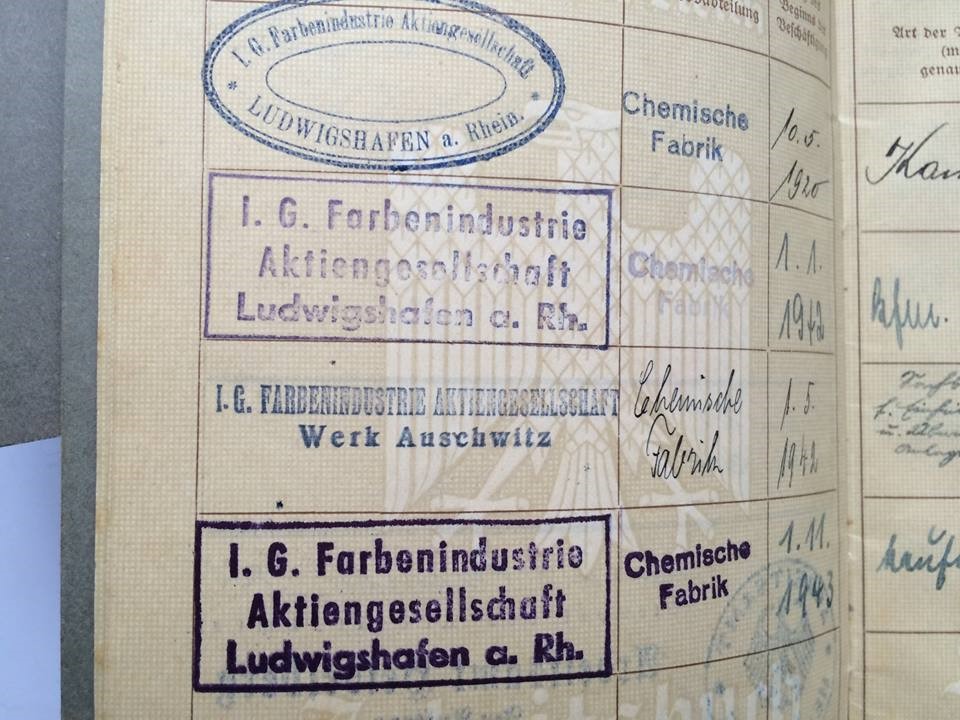 Beginns der
Beschäftigung
Art der
I. G. Farbenindustrie Aktiengesellschaft
* *
LUDWIGSHAFEN a. Rhein.
Chemische
Fabrik
10. 5.
1920
I. G. Farbenindustrie
Aktiengesellschaft
Ludwigshafen a. Rh.
Chemische
Fabrik
1. 1.
1942
I. G. FARBENINDUSTRIE AKTIENGESELLSCHAFT
Werk Auschwitz
Chemische
Fabrik
1. 5.
1942
I. G. Farbenindustrie
Aktiengesellschaft
Ludwigshafen a. Rh.
Chemische
Fabrik
1. 11.
1943